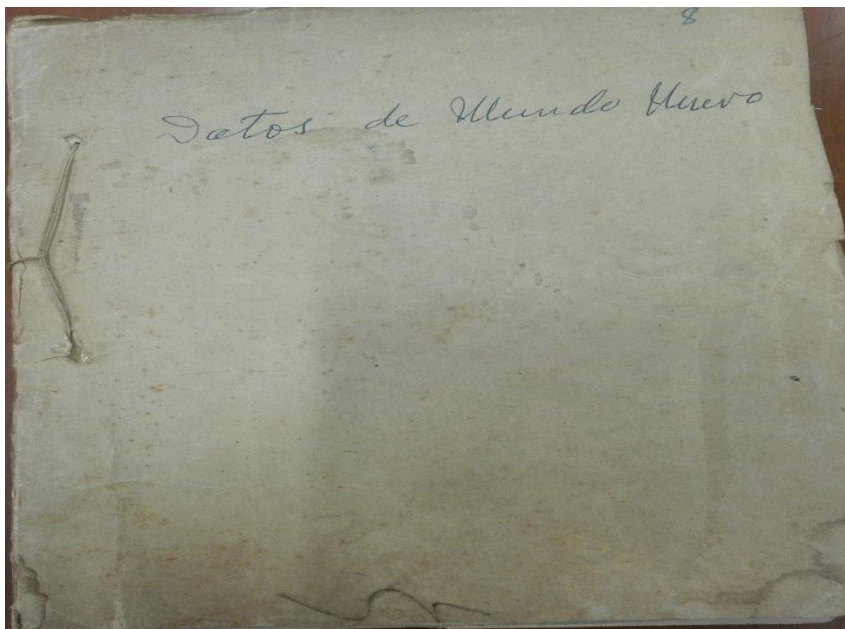 8
Datos de Mundo Nuevo